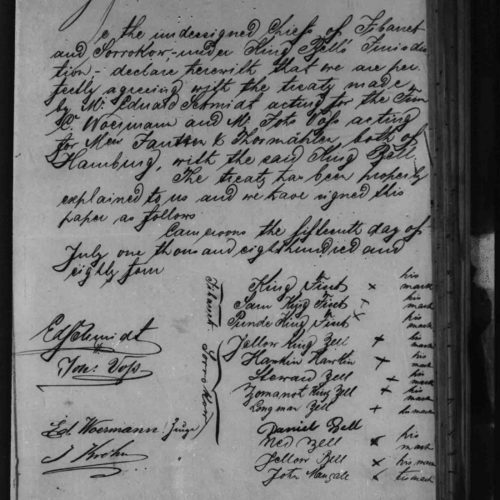 e the undersigned Chiefs of Tibanet
and Sorrokow, under King Bell's Jurisdic
tion, declare herewith that we are per
fectly agreeing with the treaty made
by Mr Eduard Schmidt acting for the Firm
C. Woermann and Mr Joh's Voss acting
for Mess Jantzen & Thormählen, both of
Hamburg, with the said King Bell.
The treaty has been properly
explained to us and we have signed this
paper as follows
Cameroons the fifteenth day of
July one thousand eighthundred and
eighty four
Tibanet
Sorrokow
King Finet x his mark
Sam King Finet x his mark
Punde King Finet x his mark
Jellow King Bell x his mark
Hawkin Hawkin x his mark
Steward Bell x his mark
Zomanot King Bell x his mark
Long man Bell + his mark
Daniel Bell
Ned Bell x his mark
Jellow Bell x his mark
John x his mark
Ed Schmidt
Joh: Voss
Ed. Woermann
J Krohn